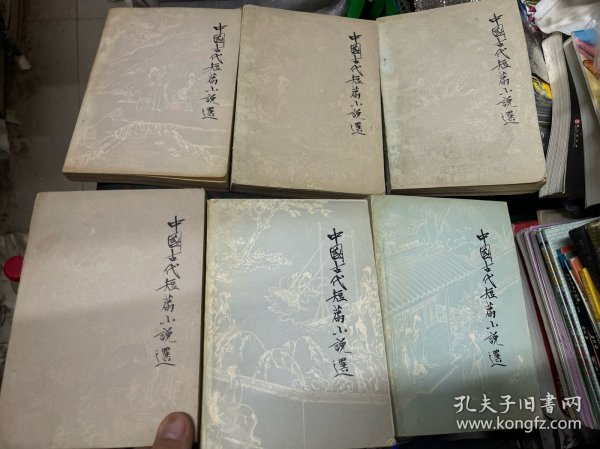 中國古代短篇小説選
中國古代短篇小説選
中國古代短篇小説選
中國古代短篇小説選
中國古代短篇小説選
中國古代短篇小説選
孔夫子旧書网
www.kongfz.com